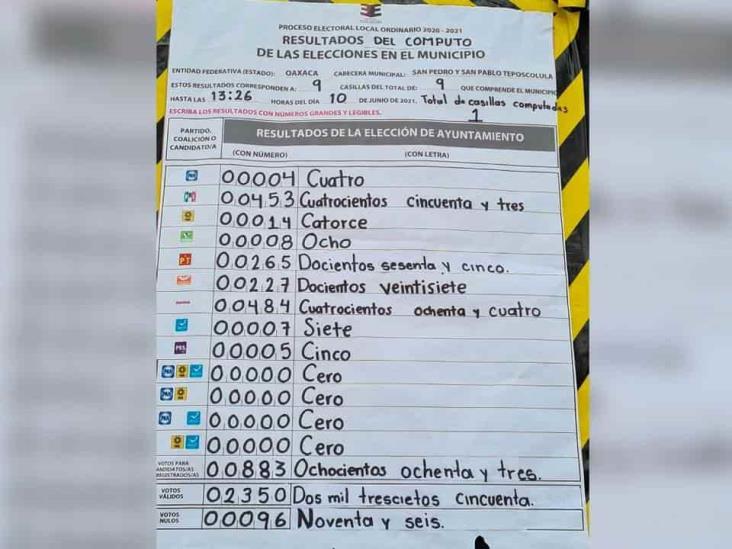 PROCESO ELECTORAL LOCAL ORDINARIO 2020 - 2021
RESULTADOS DEL COMPUTO
DE LAS ELECCIONES EN EL MUNICIPIO
ENTIDAD FEDERATIVA (ESTADO): OAXACA CABECERA MUNICIPAL: SAN PEDRO Y SAN PABLO TEPOSCOLULA
ESTOS RESULTADOS CORRESPONDEN A: 9 CASILLAS DEL TOTAL DE: 9 QUE COMPRENDE EL MUNICIPIO
HASTA LAS 13:26 HORAS DEL DÍA 10 DE JUNIO DE 2021. Total de casillas computadas
1
ESCRIBA LOS RESULTADOS CON NÚMEROS GRANDES Y LEGIBLES.
PARTIDO, COALICIÓN O CANDIDATO/A
RESULTADOS DE LA ELECCIÓN DE AYUNTAMIENTO
(CON NÚMERO) (CON LETRA)
PAN 00004 Cuatro
PRI 00453 Cuatrocientos cincuenta y tres
00014 Catorce
00008 Ocho
PT 00265 Docientos sesenta y cinco.
00227 Docientos veintisiete
morena 00484 Cuatrocientos ochenta y cuatro
00007 Siete
PES 00005 Cinco
PAN 00000 Cero
PAN 00000 Cero
PAN 00000 Cero
00000 Cero
VOTOS PARA CANDIDATOS/AS REGISTRADOS/AS 00883 Ochocientos ochenta y tres.
VOTOS VÁLIDOS 02350 Dos mil trescietos cincuenta.
VOTOS NULOS 00096 Noventa y seis.